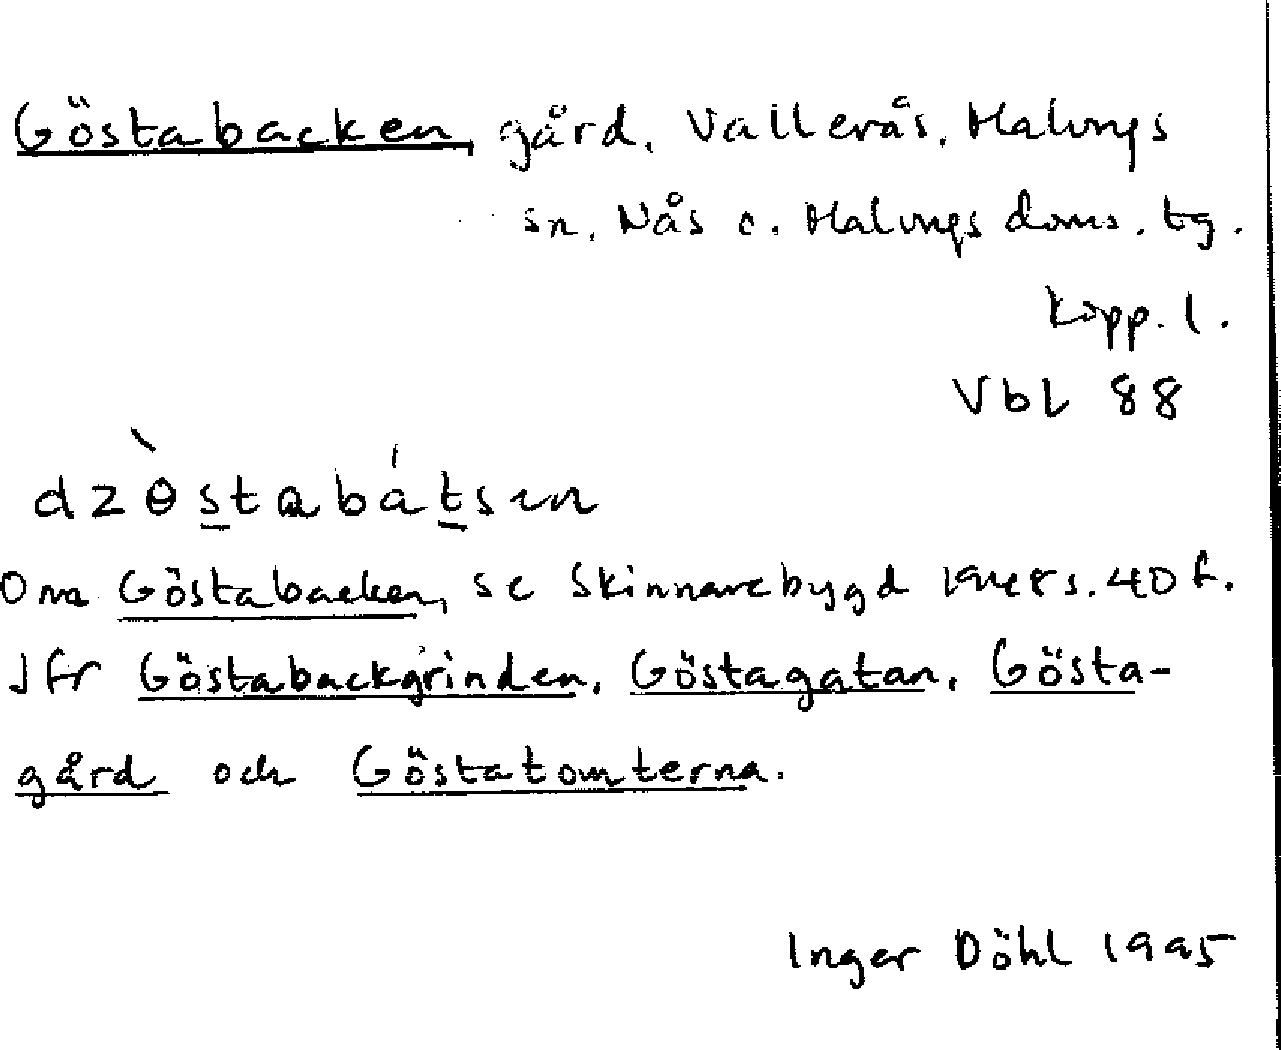 Göstabacken, gård, Vallerås, Malungs
sn, Nås o. Malungs doms. tg.
Kopp. l.
Vbl 88
dzɵ̀stabátsın
Om Göstabacken, se Skinnarebygd s. 40 f.
Jfr Göstabackgrinden, Göstagatan, Gösta-
gård och Göstatomterna.
Inger Döhl 1995